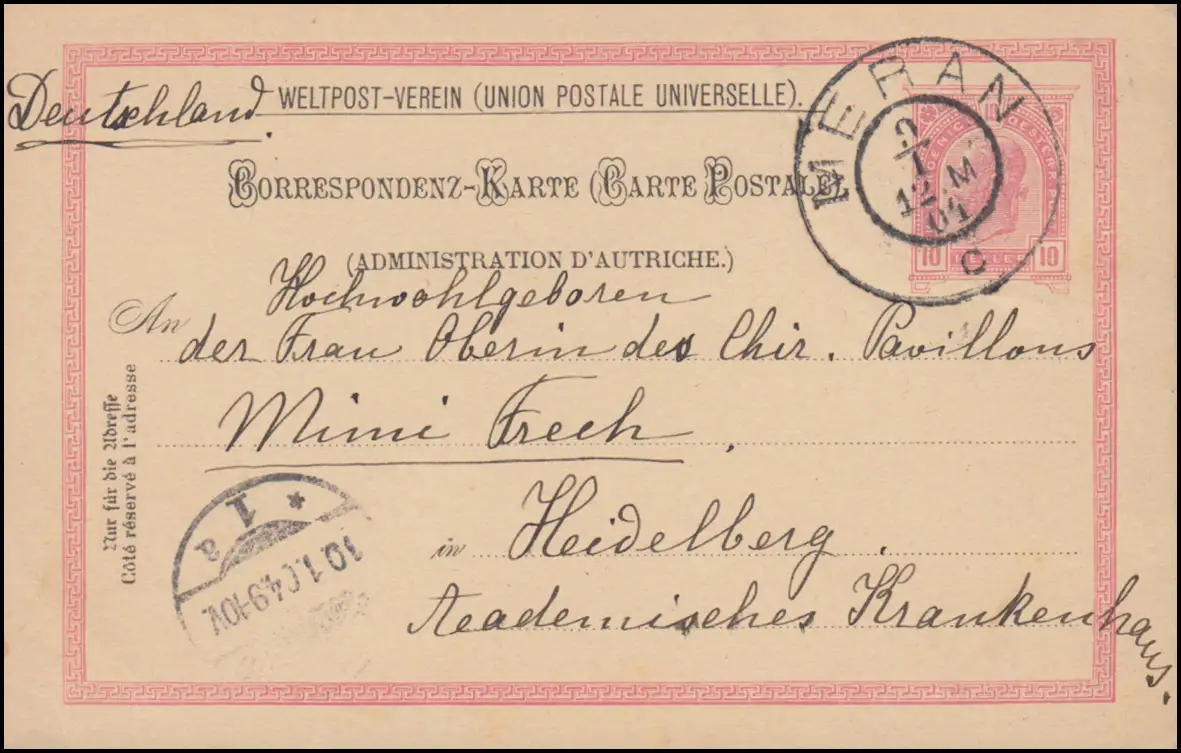 Deutschland.
WELTPOST-VEREIN (UNION POSTALE UNIVERSELLE).
CORRESPONDENZ-KARTE (CARTE POSTALE)
(ADMINISTRATION D'AUTRICHE.)
MERAN
9
1
12 M
04
c
10 HELLER 10
An Hochwohlgeboren
der Frau Oberin des Chir. Pavillons
Mimi Frech,
in Heidelberg.
Academisches Krankenhaus.
Nur für die Adresse
Côté réservé à l'adresse
* 1 a
10.1.04.9-10V.